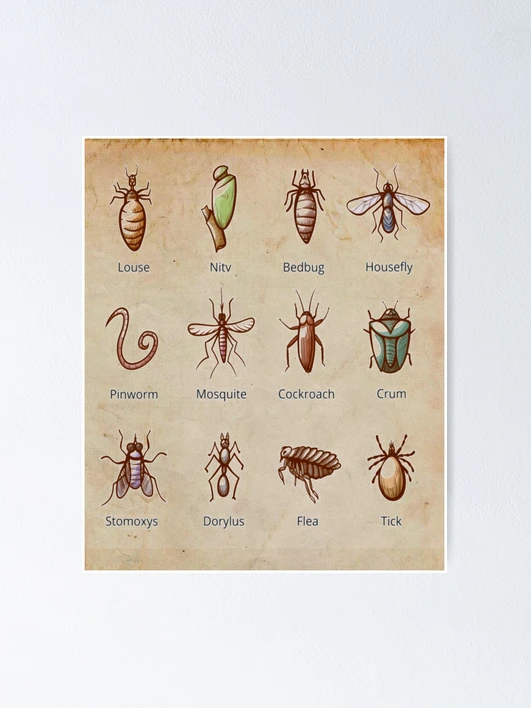 Louse Nitv Bedbug Housefly
Pinworm Mosquite Cockroach Crum
Stomoxys Dorylus Flea Tick